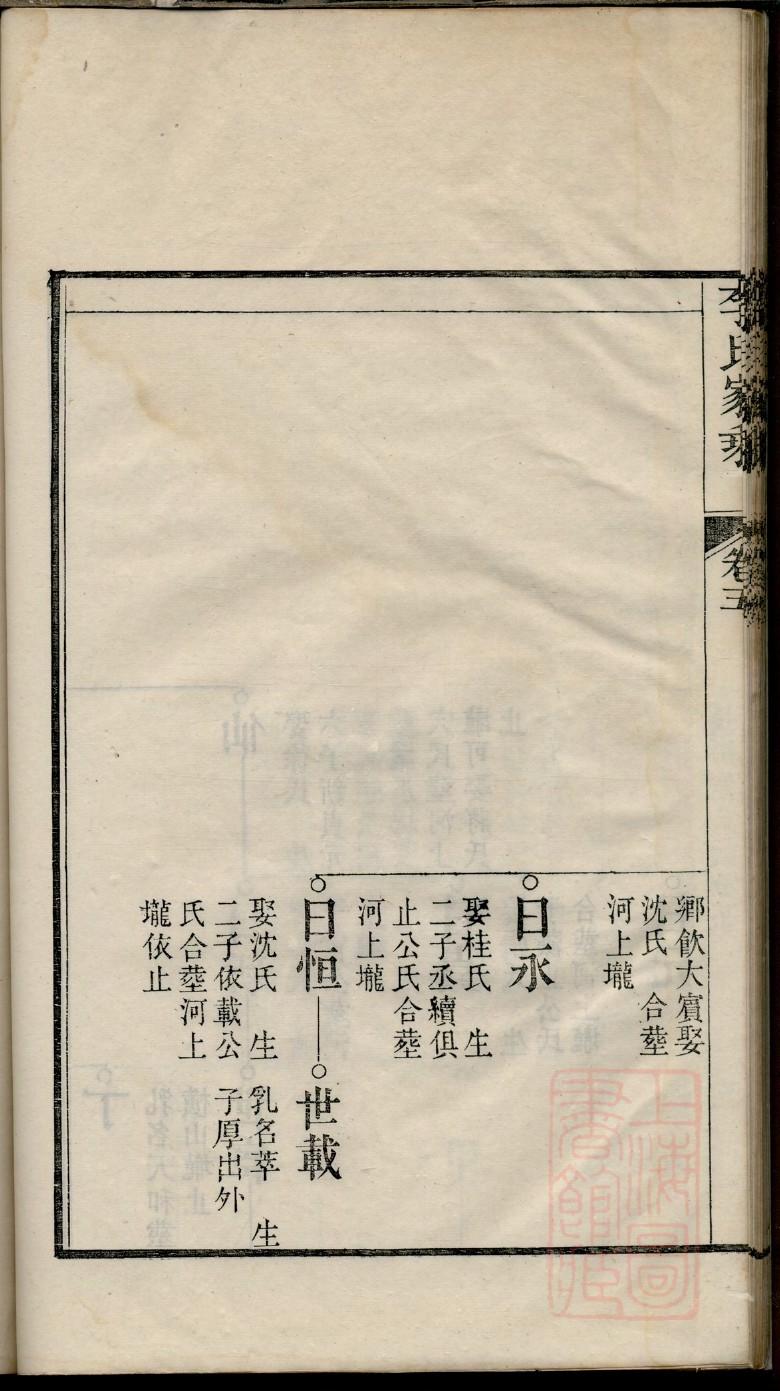 李氏家乘
卷三
鄉飲大賓娶
沈氏　合塟
河上壠
曰永
娶桂氏　生
二子丞續俱
止公氏合塟
河上壠
曰恒
娶沈氏　生
二子依載公
氏合塟河上
壠依止
世載
乳名萃　生
子厚出外
上海圖
書館藏